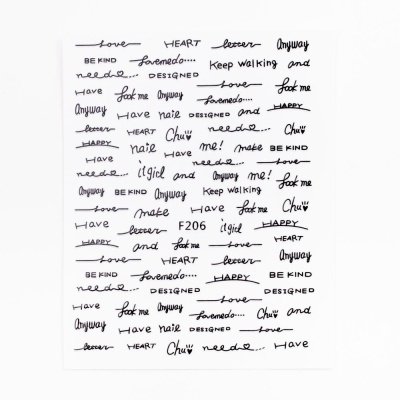 Love HEART letter Anyway
BE KIND Lovemedo.... Keep walking and
need.... DESIGNED Love
Have look me Anyway Lovemedo.... look me
Anyway Have nail DESIGNED and HAPPY
letter HEART Chu need.... Chu
HAPPY nail Have me! make BE KIND
Have need.... Love
need.... itgirl and Anyway me! look me
Anyway BE KIND Anyway Keep walking
Love make Have look me Chu
Have letter F206 itgirl HAPPY
HAPPY and look me letter HEART
Love HEART letter Anyway
BE KIND Lovemedo.... HAPPY BE KIND
need.... DESIGNED Love DESIGNED
Have look me Anyway Lovemedo.... Chu and
Anyway Have nail DESIGNED Love
letter HEART Chu need.... Have